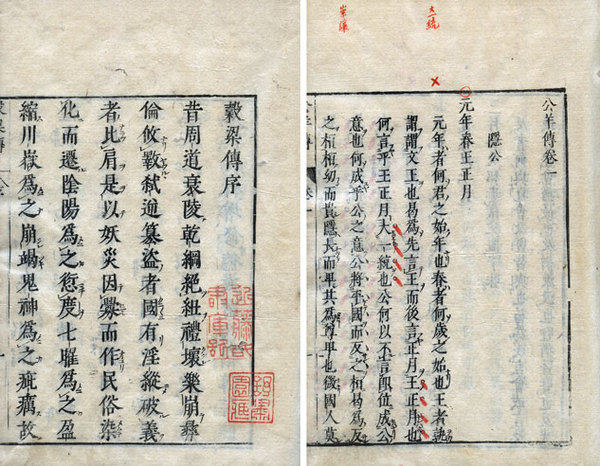 公羊傳卷一
隱公
元年春王正月
元年者何君之始年也春者何歲之始也王者孰
謂謂文王也曷為先言王而後言正月王正月也
何言乎王正月大一統也公何以不言即位成公
意也何成乎公之意公將平國而反之桓曷為反
之桓桓幼而貴隱長而卑其為尊卑也微國人莫
穀梁傳序
昔周道衰陵乾綱絕紐禮壞樂崩彝
倫攸斁弒逆篡盜者國有淫縱破義
者比肩是以妖災因釁而作民俗染
化而遷陰陽為之愆度七曜為之盈
縮川嶽為之崩竭鬼神為之疵癘故